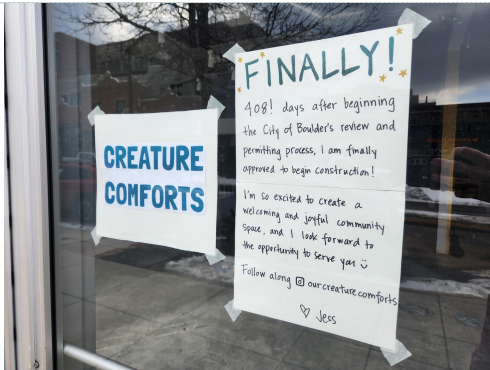 CREATURE
COMFORTS
FINALLY!
408! days after beginning
the City of Boulder's review and
permitting process, I am finally
approved to begin construction!
I'm so excited to create a
welcoming and joyful community
space, and I look forward to
the opportunity to serve you
Follow along ourcreaturecomforts
♡ Jess